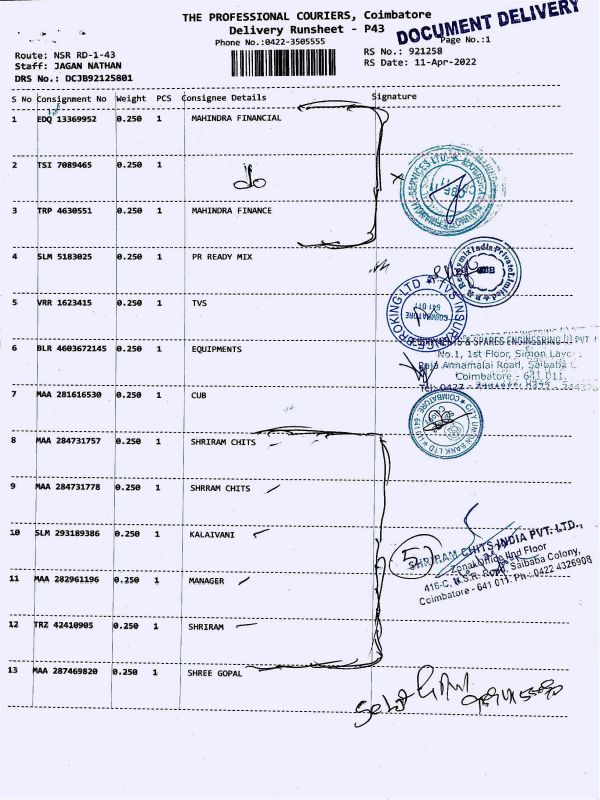 THE PROFESSIONAL COURIERS, Coimbatore
DOCUMENT DELIVERY
Delivery Runsheet - P43
Phone No.:0422-3505555
Page No.:1
Route: NSR RD-1-43
RS No.: 921258
Staff: JAGAN NATHAN
RS Date: 11-Apr-2022
DRS No.: DCJB92125801
S No Consignment No Weight PCS Consignee Details Signature
1 EDQ 13369952 0.250 1 MAHINDRA FINANCIAL
2 TSI 7089465 0.250 1 do
3 TRP 4630551 0.250 1 MAHINDRA FINANCE
4 SLM 5183025 0.250 1 PR READY MIX
5 VRR 1623415 0.250 1 TVS
6 BLR 4603672145 0.250 1 EQUIPMENTS
& SPARES ENGINEERING (I) PVT
No.1, 1st Floor, Simon Layo
Raja Annamalai Road, Saibaba C
Coimbatore - 641 011.
Tel: 0422 -
7 MAA 281616530 0.250 1 CUB
CITY UNION BANK LTD
COIMBATORE - 641
8 MAA 284731757 0.250 1 SHRIRAM CHITS
9 MAA 284731778 0.250 1 SHRRAM CHITS
10 SLM 293189386 0.250 1 KALAIVANI
5)
SHRIRAM CHITS INDIA PVT. LTD.,
Zonal Office IInd Floor
416-C, N.S.R. Road, Saibaba Colony,
Coimbatore - 641 011. Ph.: 0422 4326908
11 MAA 282961196 0.250 1 MANAGER
12 TRZ 42410905 0.250 1 SHRIRAM
13 MAA 287469820 0.250 1 SHREE GOPAL